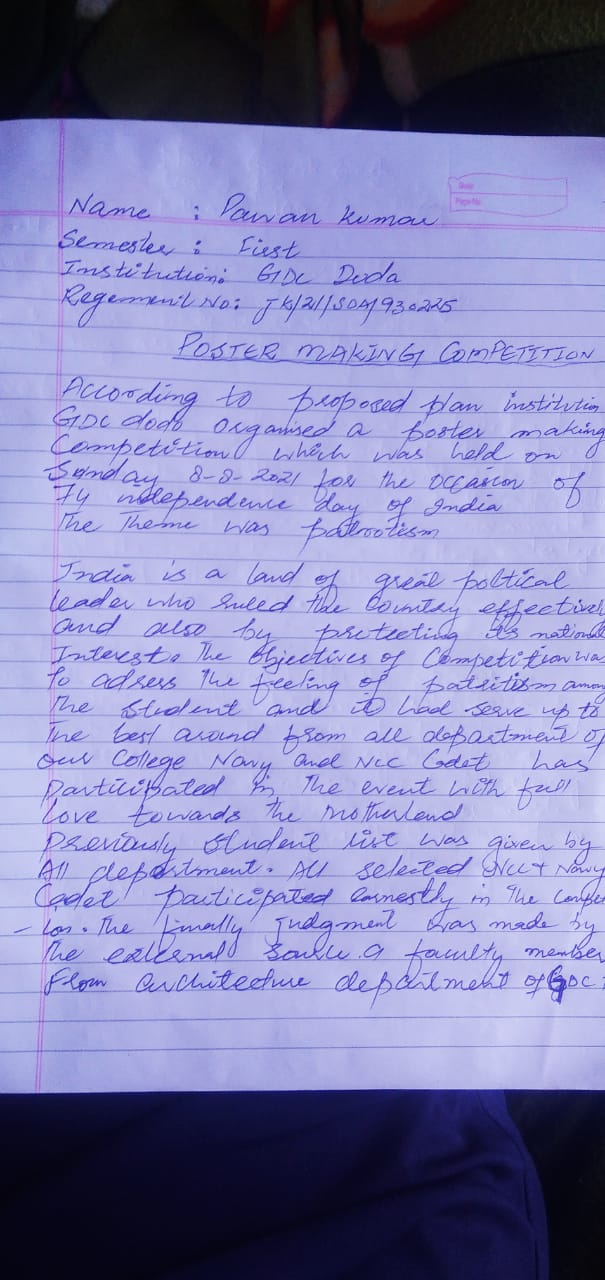 Date
Page No.
Name : Pawan Kumar
Semester : First
Institution: GDC Doda
Regement No: JK/21/SDA/930225
POSTER MAKING COMPETITION
According to proposed plan institution
GDC dodo organised a poster making
Competition which was held on
Sunday 8-8-2021 for the occasion of
74 independence day of India
The Theme was patrootism
India is a land of great poltical
leader who ruled the country effectively
and also by protecting its national
Interest. The Objectives of Competition was
To adress the feeling of patritism among
The Student and it had serve up to
The best around from all department of
our College Navy and NCC Cadet has
Participated in The event with full
love towards the motherland
Previously Student list was given by
All department. All selected NCC + Navy
Cadet participated earnestly in The
The finally Judgment was made by
The external a faculty member
From architecture department of GDC